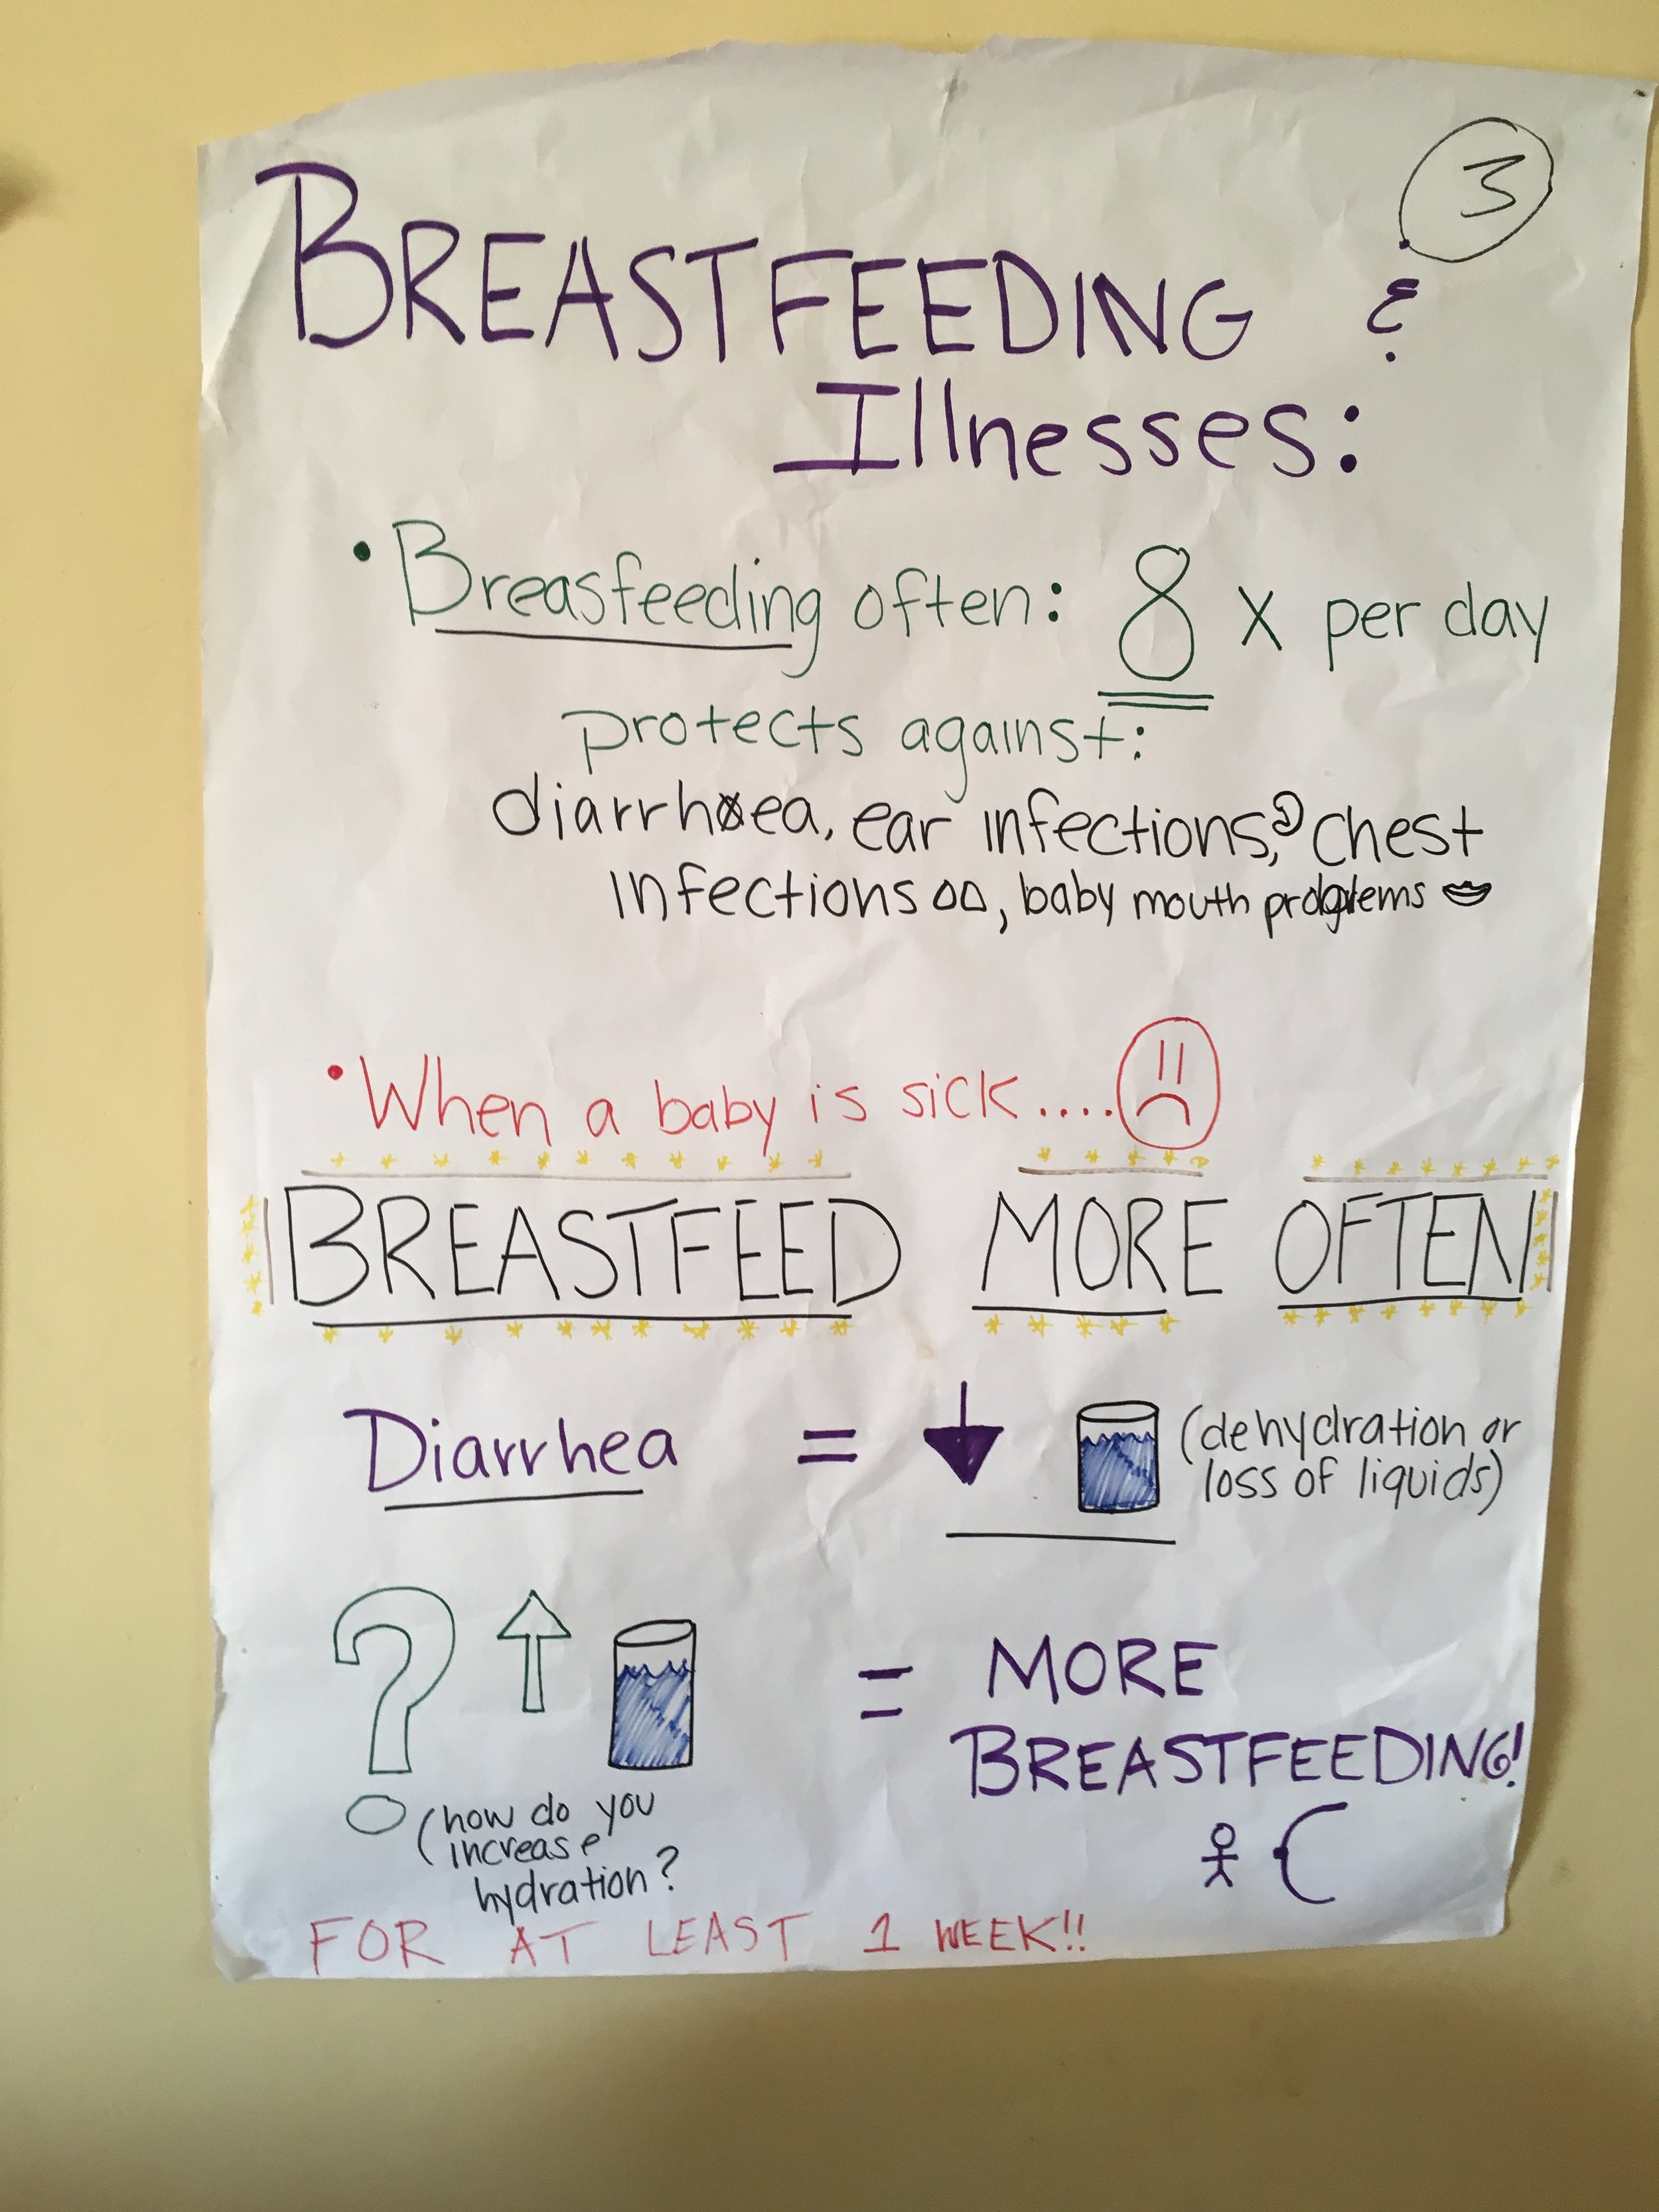 3
BREASTFEEDING &
Illnesses:
• Breasfeeding often: 8 x per day
protects against:
diarrhea, ear infections, chest
infections, baby mouth problems
• When a baby is sick....
BREASTFEED MORE OFTEN!
Diarrhea = (dehydration or
loss of liquids)
? = MORE
BREASTFEEDING!
(how do you
increase
hydration?
FOR AT LEAST 1 WEEK!!